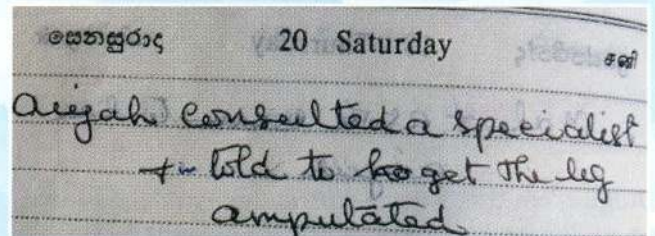 සෙනසුරාදා 20 Saturday சனி
Aiyah consulted a specialist
+ told to get the leg
amputated